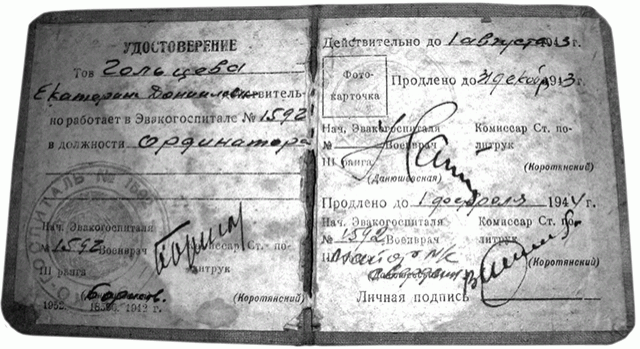 УДОСТОВЕРЕНИЕ
Тов Гольцева
Екатерин Данииловн действитель-
но работает в Эвакогоспитале № 1592
в должности ординатора
Нач. Эвакогоспиталя
№ 1592 Военврач
III ранга
Комиссар Ст. по-
литрук
(Коротянский)
1942 г.
Действительно до 1 августа 1943 г.
Фото-
карточка
Продлено до 31 декабр 1943 г.
Нач. Эвакогоспиталя
№ Военврач
III ранга
(Данюшевская)
Комиссар Ст. по-
литрук
(Коротянский)
Продлено до 1 февраля 1944 г.
Нач. Эвакогоспиталя
№ 1592 Военврач
майор м/с
Комиссар Ст. по-
литрук
(Коротянский)
Личная подпись